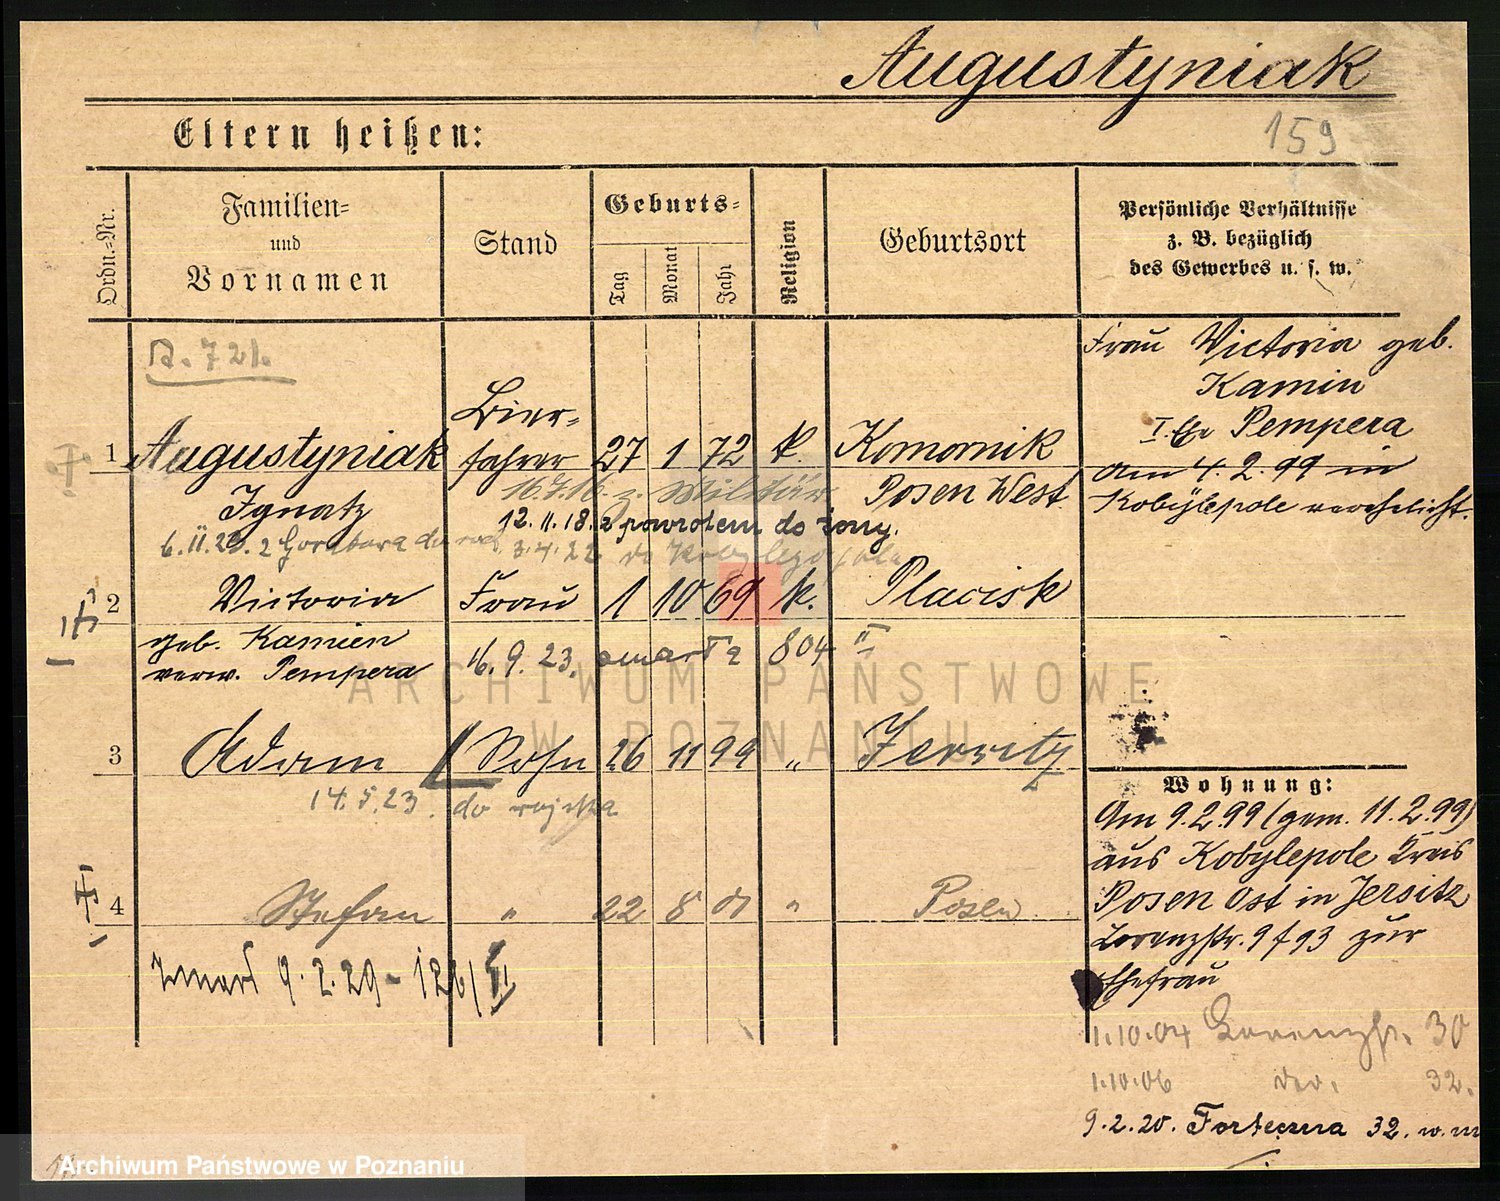 Augustyniak
159
Eltern heißen:
Ordn.-Nr.
Familien-
und
Vornamen
Stand
Geburts-
Tag
Monat
Jahr
Religion
Geburtsort
Persönliche Verhältnisse
z. B. bezüglich
des Gewerbes u. s. w.
721.
Frau Victoria geb.
Kamin
I. Pempera
am 4. 2. 99 in
Kobylepole verehelicht.
Bier-
1 Augustyniak fahrer 27 1 72 k. Komornik
16.7.16. z. Militär
Ignatz Posen West
12. 11. 18. z powrotem do żony.
3.4.22 do
2 Victoria Frau 1 10 69 k. Placisk
geb. Kamien
verw. Pempera 16. 9. 23. zmarła 804 II
ARCHIWUM PAŃSTWOWE
W POZNANIU
3 Adam Sohn 26 11 99 " Jersitz
14. 5. 23. do wojska
Wohnung:
Am 9.2.99 (gem. 11.2.99)
aus Kobylepole Kreis
Posen Ost in Jersitz
Lorenzstr. 9 f 93 zur
Ehefrau
4 Stefan " 22 8 01 " Posen
zmarł 9. 2. 29 - 126/II
1.10.04 Lorenzstr. 30
1.10.06 32.
9. 2. 20. Forteczna 32. w. m
Archiwum Państwowe w Poznaniu